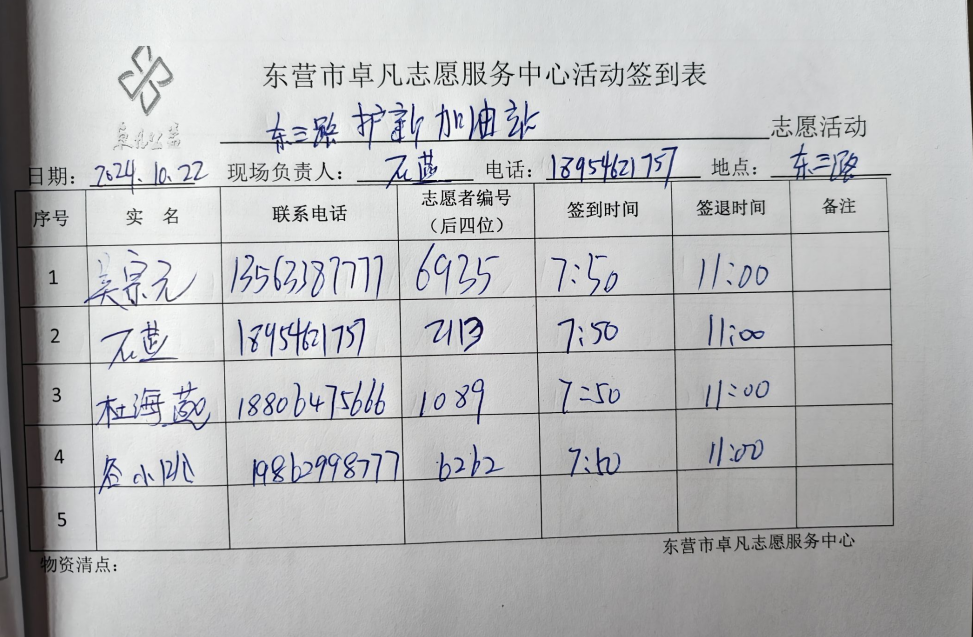 东营市卓凡志愿服务中心活动签到表
卓凡公益
东三路护新加油站 志愿活动
日期：2024.10.22 现场负责人：石蓝 电话：18954621757 地点：东三路
序号 实 名 联系电话 志愿者编号（后四位） 签到时间 签退时间 备注
1 吴宗元 13563387777 6935 7:50 11:00
2 石蓝 18954621757 2113 7:50 11:00
3 杜海 18806475666 1089 7:50 11:00
4 谷小 19862998777 6262 7:50 11:00
5
物资清点： 东营市卓凡志愿服务中心